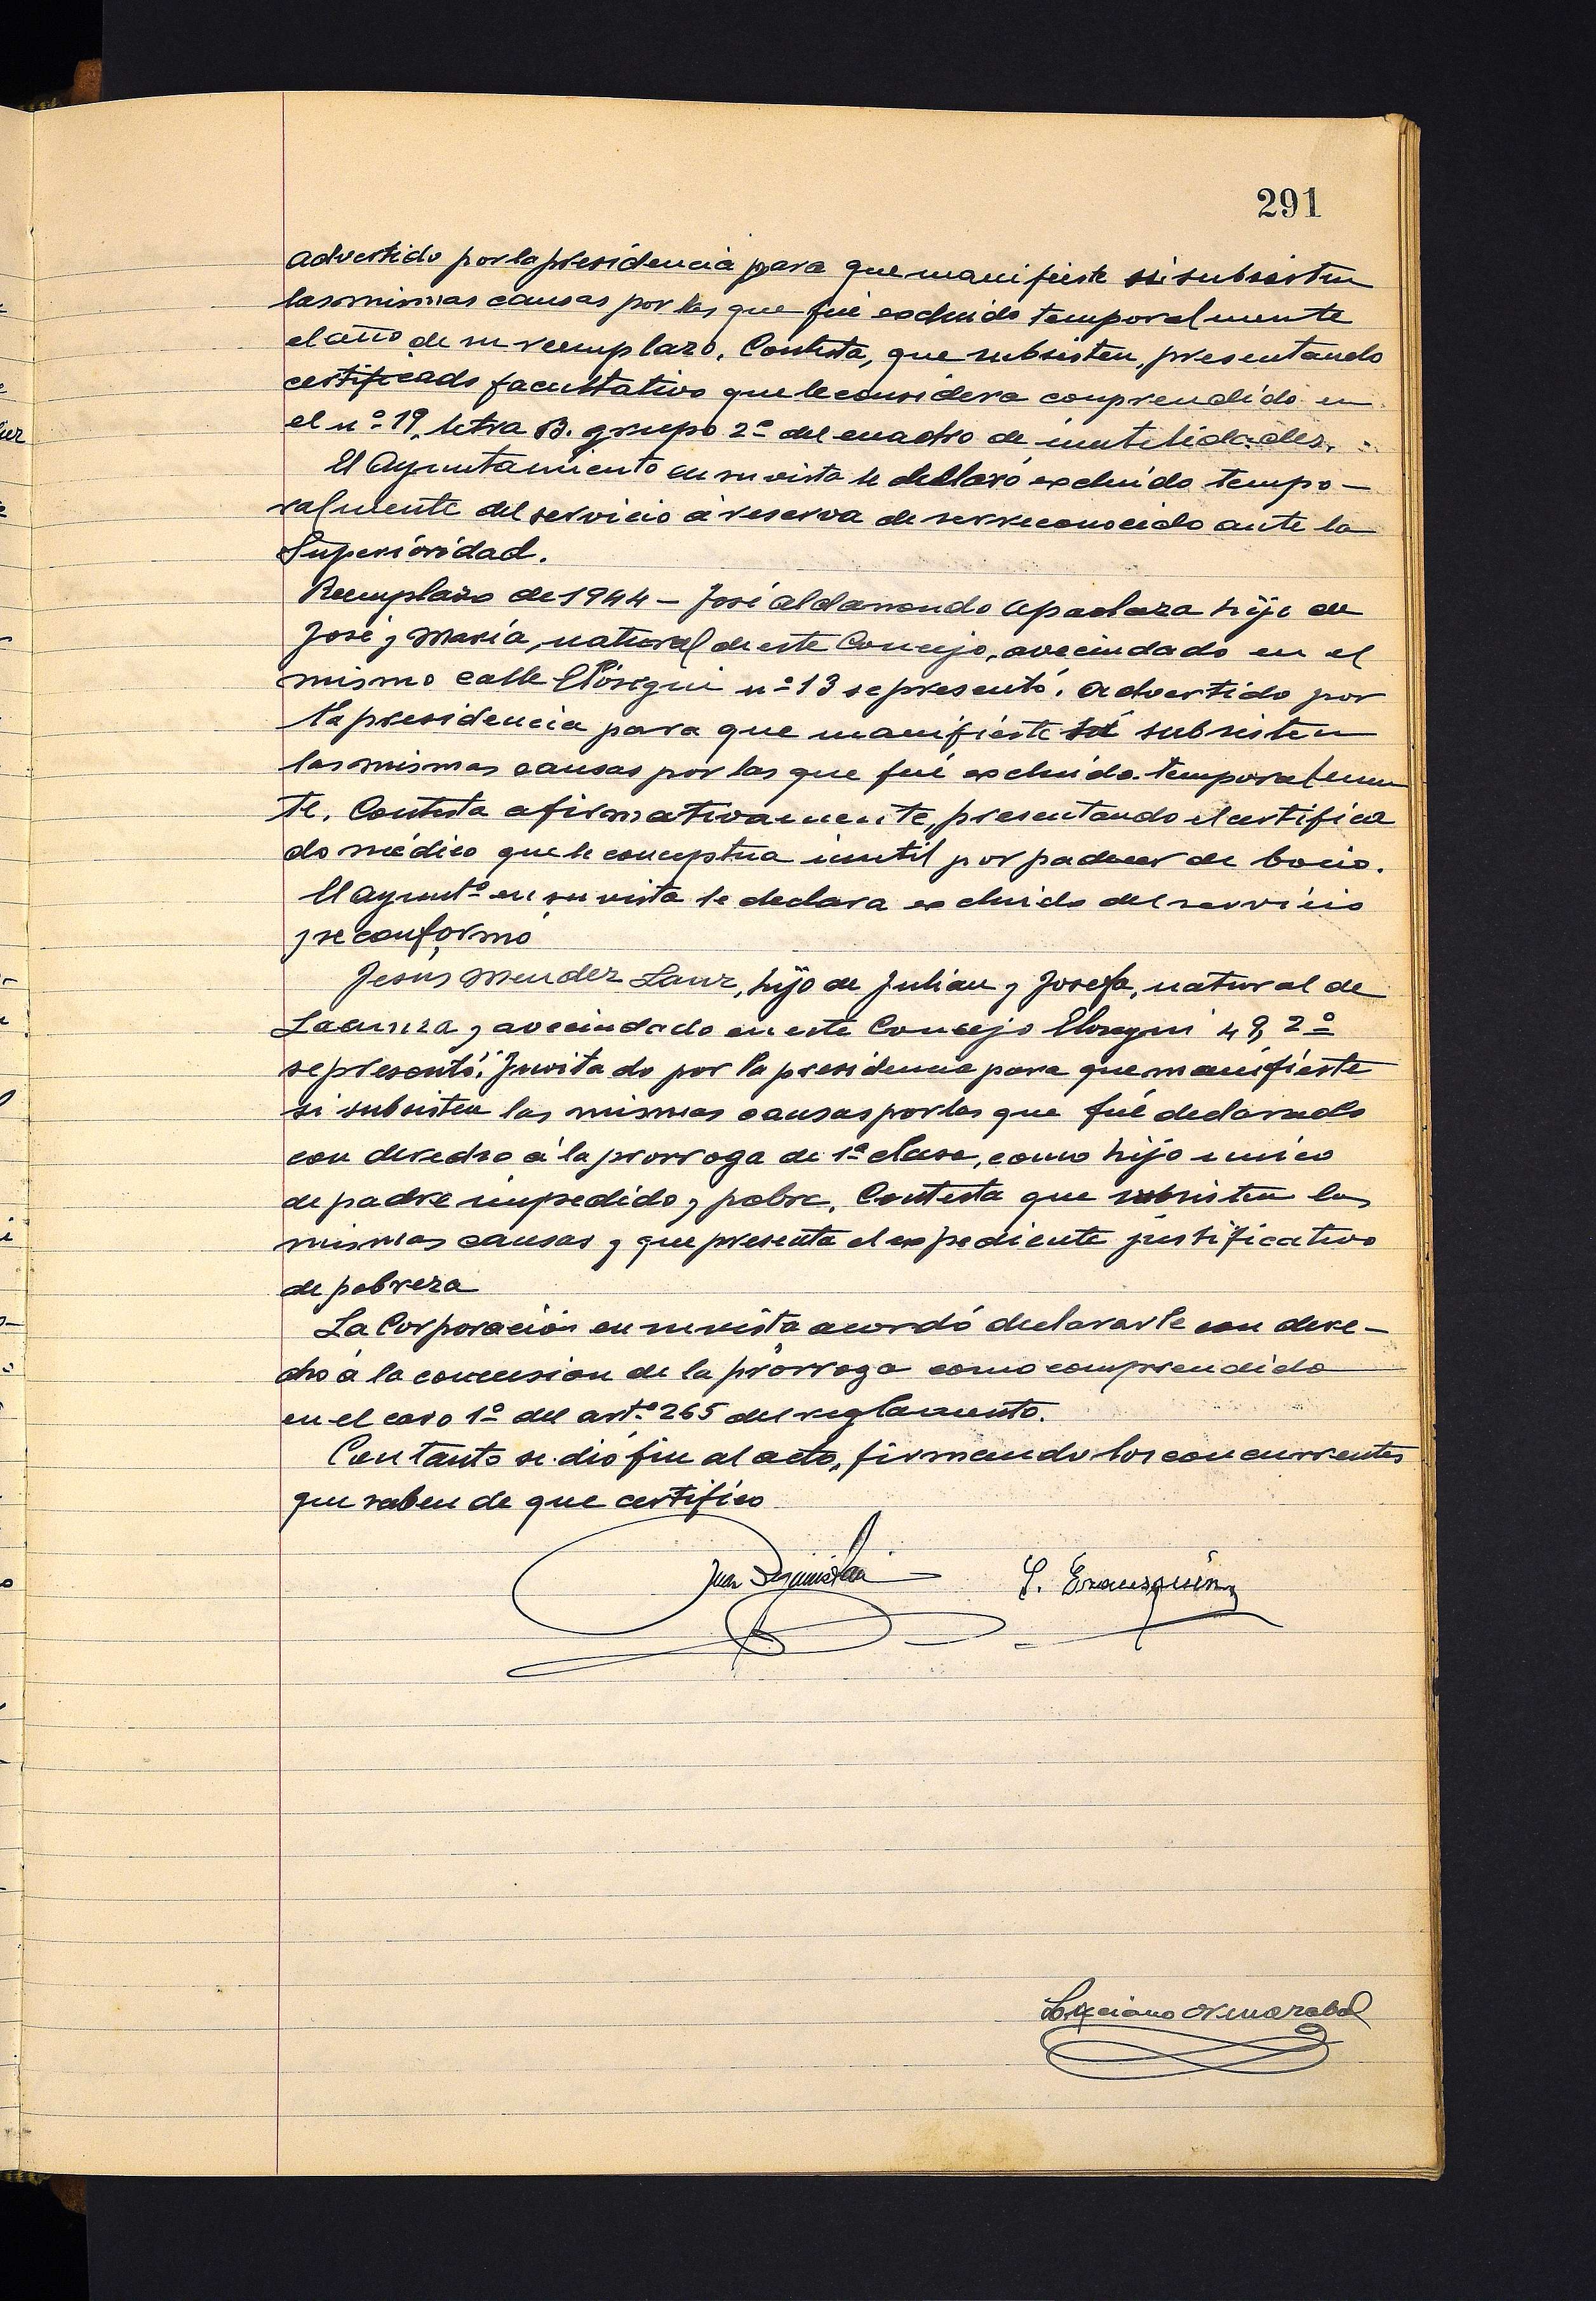 291
advertido por la presidencia para que manifieste si subsisten
las mismas causas por las que fué excluido temporalmente
el año de su reemplazo. Contesta, que subsisten, presentando
certificado facultativo que le considera comprendido en
el nº 19, letra B. grupo 2º del cuadro de inutilidades.
El Ayuntamiento en su vista le declaró excluido tempo-
ralmente del servicio á reserva de ser reconocido ante la
Superioridad.
Reemplazo de 1944 - José Aldamondo Apaolaza hijo de
José y María, natural de este Concejo, avecindado en el
mismo calle Elósegui nº 13 se presentó. Advertido por
la presidencia para que manifieste si subsisten
las mismas causas por las que fué excluido temporalmen
te. Contesta afirmativamente, presentando el certifica
do médico que le conceptua inutil por padecer de bocio.
El Ayuntº en su vista le declara excluido del servicio
y se conformó
Jesús Mendez Lanz, hijo de Julian y Josefa, natural de
y avecindado en este Concejo Elosegui 49, 2º
se presentó. Invitado por la presidencia para que manifieste
si subsisten las mismas causas por las que fué declarado
con derecho á la prorroga de 1ª clase, como hijo unico
de padre impedido y pobre. Contesta que subsisten las
mismas causas y que presenta el expediente justificativo
de pobreza
La Corporación en su vista acordó declararle con dere-
cho á la concesion de la prórroga como comprendido
en el caso 1º del artº 265 del reglamento.
Con tanto se dió fin al acto, firmando los concurrentes
que saben de que certifico
Juan S. Erausquin
Luciano